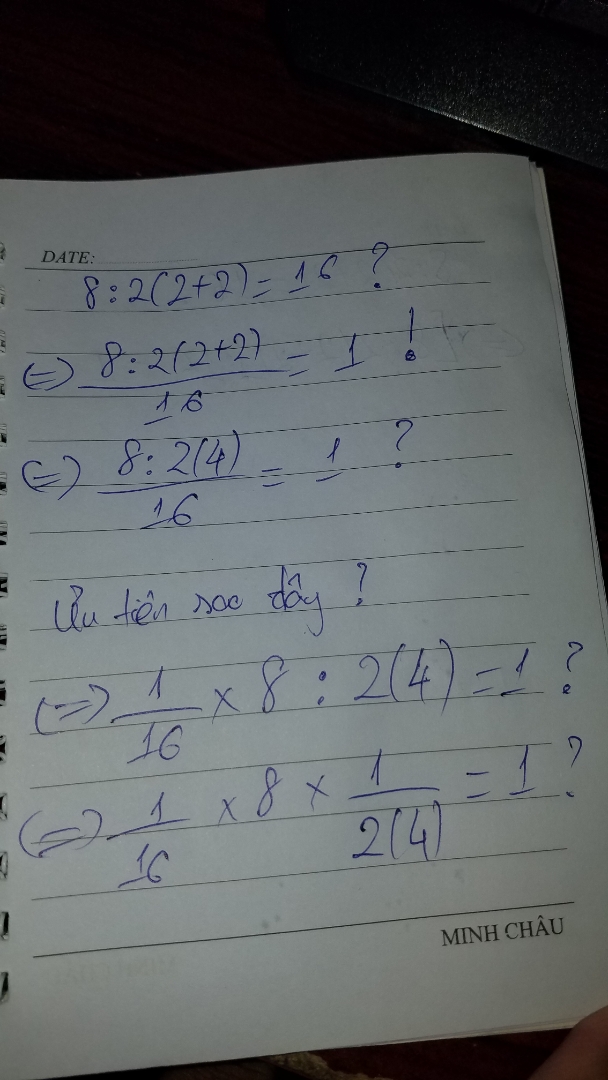 DATE:
8:2(2+2)=16 ?
(=) 8:2(2+2)/16 = 1 !
(=) 8:2(4)/16 = 1 ?
Ưu tiên sao đây ?
(=) 1/16 × 8 : 2(4) = 1 ?
(=) 1/16 × 8 × 1/2(4) = 1 ?
MINH CHÂU